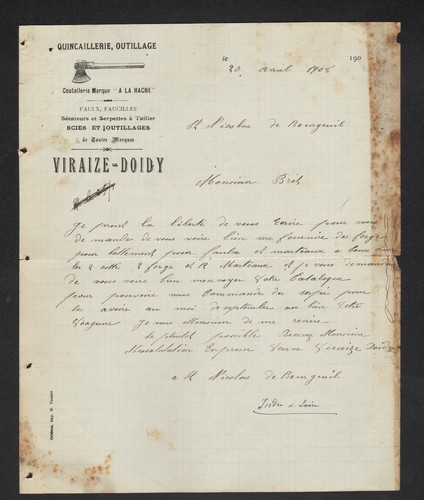 QUINCAILLERIE, OUTILLAGE
Coutellerie Marque "A LA HACHE"
FAULX, FAUCILLES
Sécateurs et Serpettes à Tailler
SCIES ET OUTILLAGES
de Toutes Marques
VIRAIZE-DOIDY
le 190
20 avril 1905
St Nicolas de Bourgueil
Monsieur
Je prend la liberté de vous écrire pour vous
de mande de vous voire bien me fournire des forge
pour battement pour faulx et marteaux
les 2 forge et Marteaux et je vous demande
de vous voire bien menvoyer votre Catalogue
pour pouvoire vous Commande des pour
les avoire au moi de septembre
Monsieur de me
le plutot possible Recevez Monsieur
Veuve Viraize Doidy
a St Nicolas de Bourgueil
Indre & Loire